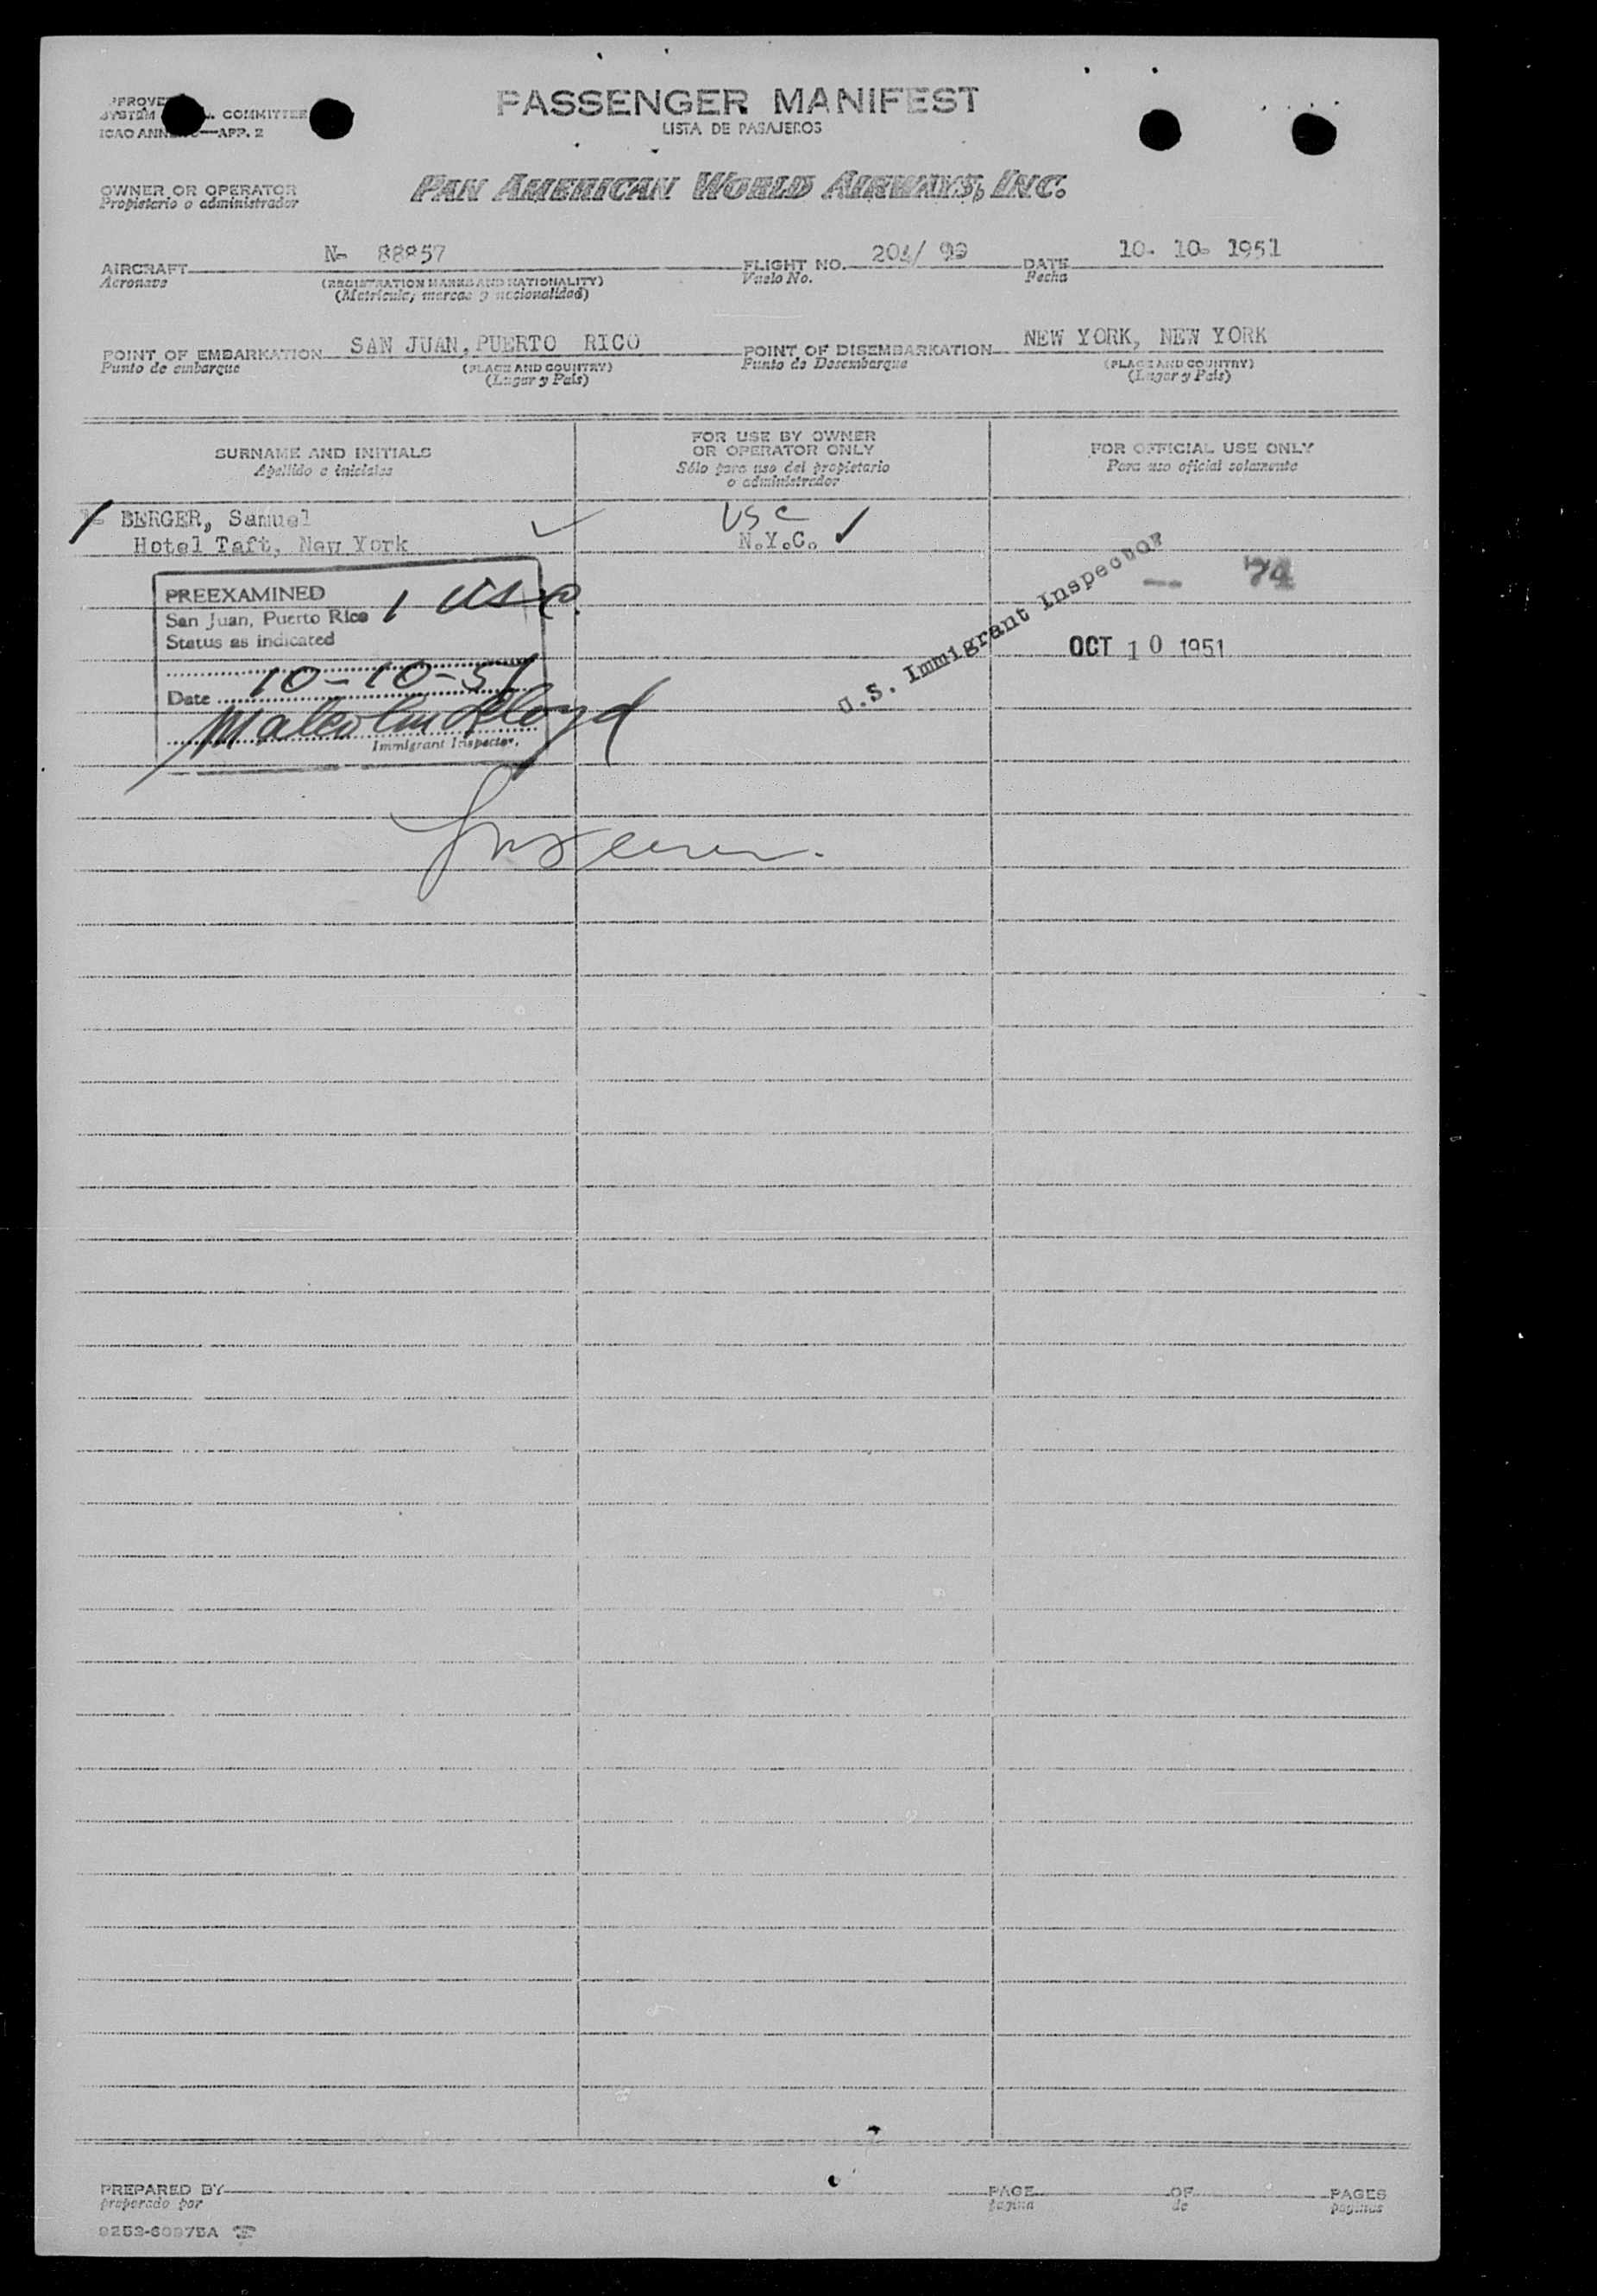 PASSENGER MANIFEST
LISTA DE PASAJEROS
SYSTEM COMMITTEE
ICAO —APP. 2
OWNER OR OPERATOR
Propietario o administrador
PAN AMERICAN WORLD AIRWAYS, INC.
AIRCRAFT N- 88857 FLIGHT NO. DATE 10- 10- 1951
Aeronave (REGISTRATION MARKS AND NATIONALITY) Vuelo No. Fecha
(Matricula, marcas y nacionalidad)
POINT OF EMBARKATION SAN JUAN, PUERTO RICO POINT OF DISEMBARKATION NEW YORK, NEW YORK
Punto de embarque (PLACE AND COUNTRY) Punto de Desembarque (PLACE AND COUNTRY)
(Lugar y País) (Lugar y País)
SURNAME AND INITIALS
Apellido e iniciales
FOR USE BY OWNER
OR OPERATOR ONLY
Sólo para uso del propietario
o administrador
FOR OFFICIAL USE ONLY
Para uso oficial solamente
BERGER, Samuel USC
Hotel Taft, New York N.Y.C.
PREEXAMINED
San Juan, Puerto Rico 1 USC
Status as indicated
Date 10-10-51
Malcolm Lloyd
Immigrant Inspector.
U.S. Immigrant Inspector
74
OCT 10 1951
PREPARED BY PAGE OF PAGES
preparado por pagina de paginas